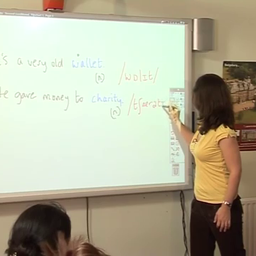 's a very old wallet
(n) /wɒlɪt/
e gave money to charity /tʃærət
(n)